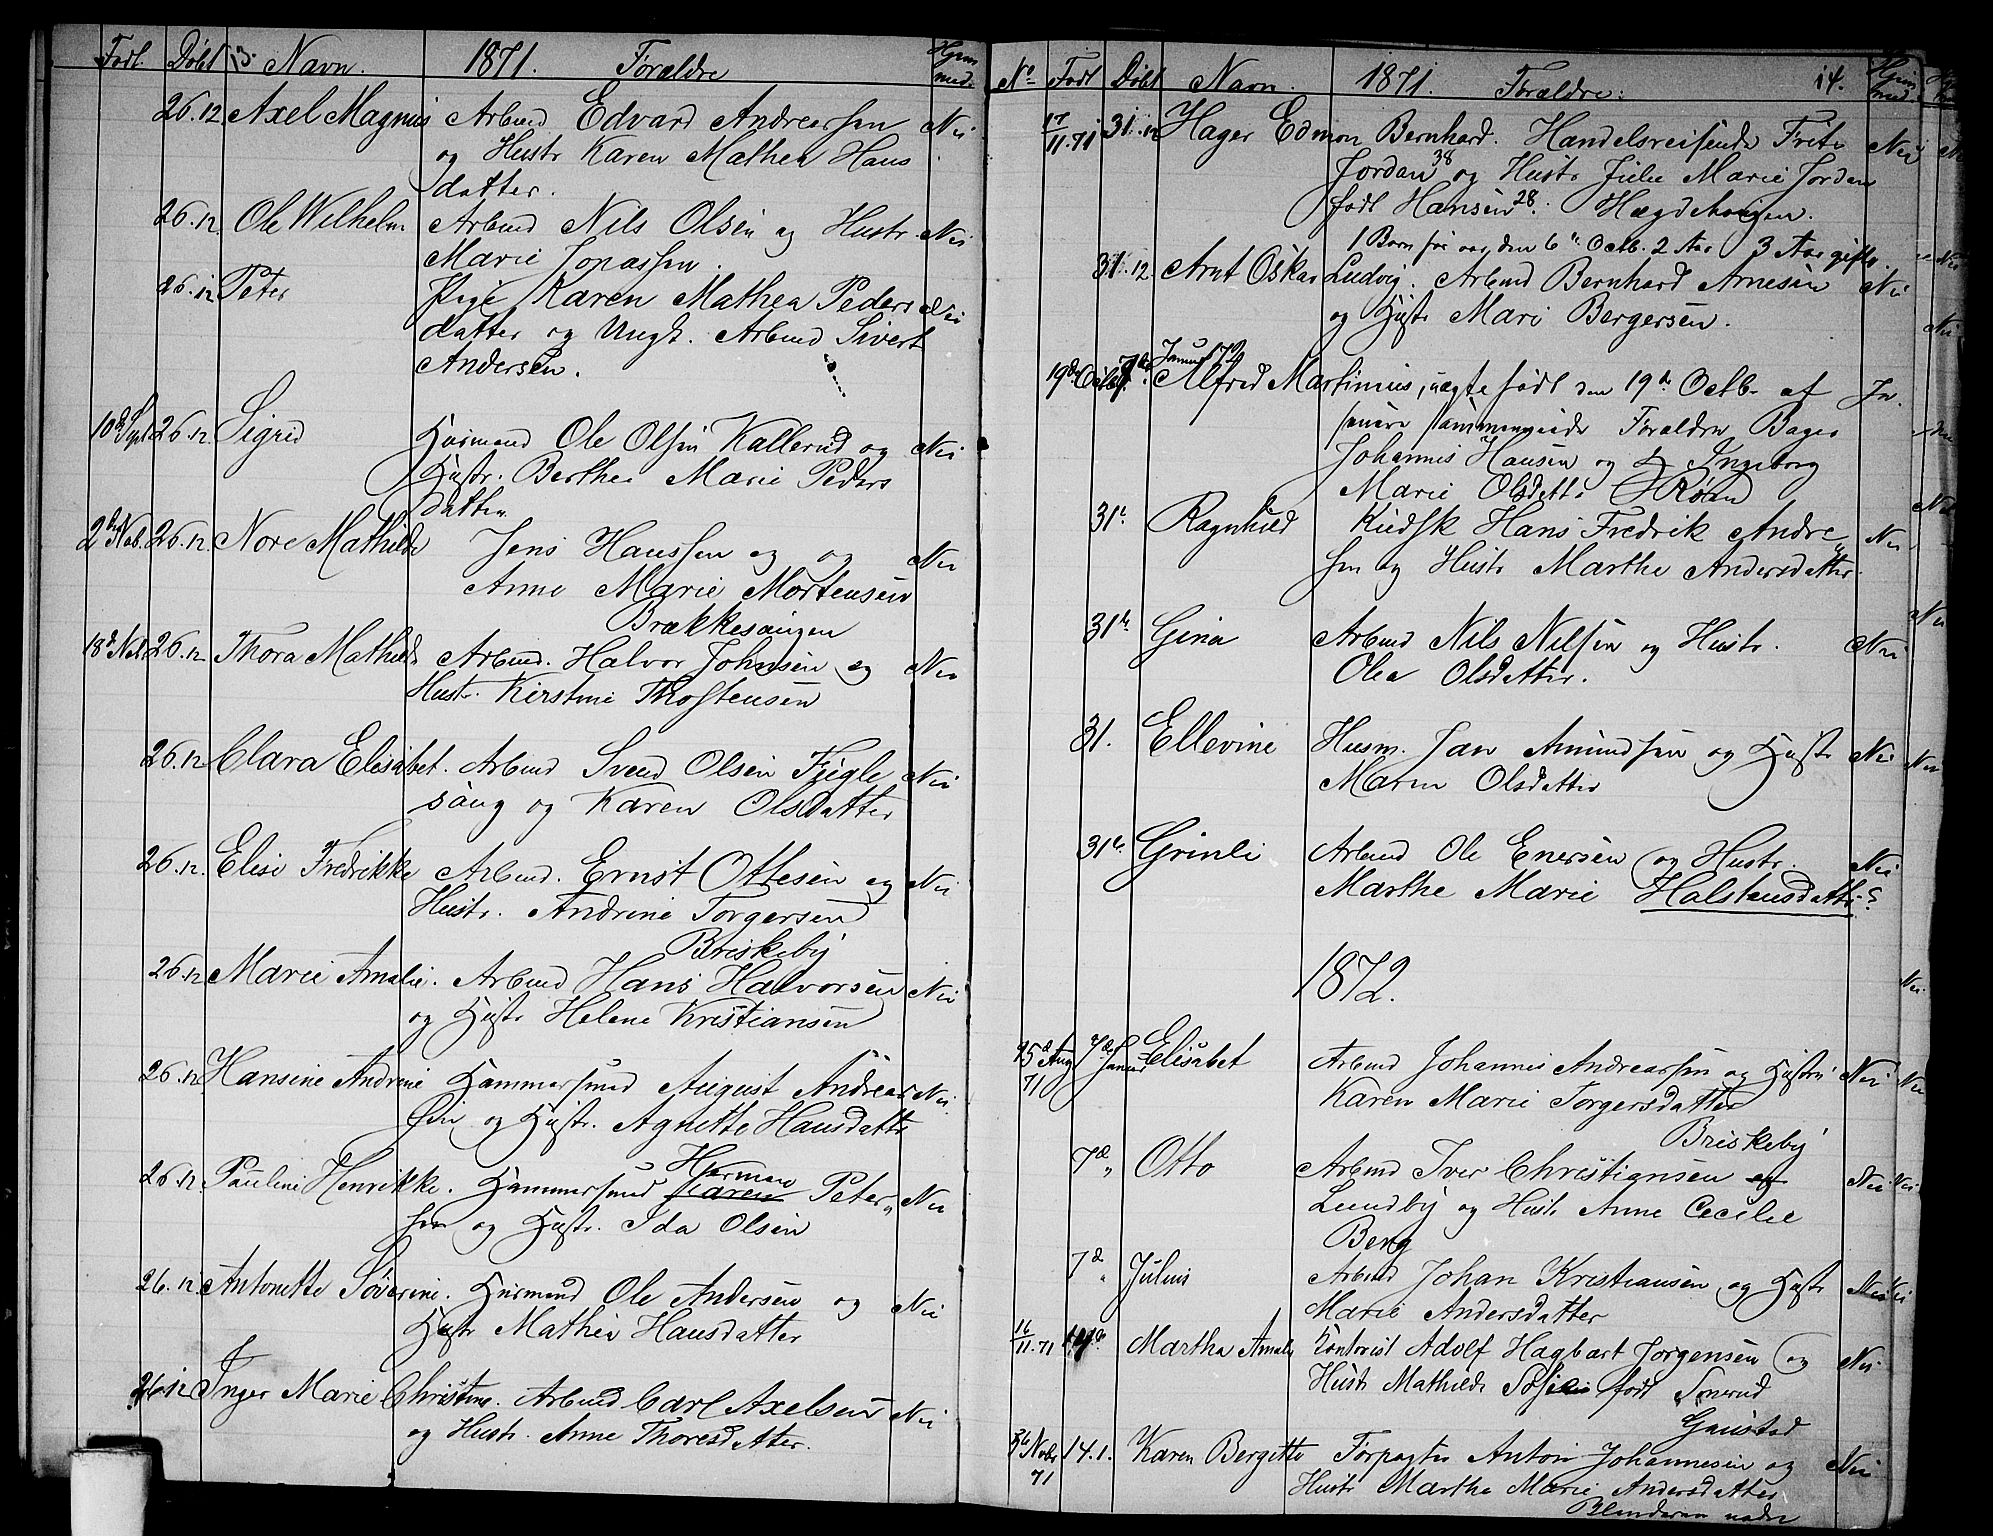 Født. Døbt 13. Navn. 1871. Forældre Hjem med.
26.12 Axel Magnus Arbmd Edvard Andreassen Nei
og Hustr Karen Mathea Hans
datter.
26.12. Ole Wilhelm Arbmd Nils Olsen og Hustr. Nei
Marie Jonassen.
26.12 Peter Pige Karen Mathea Peders Nei
datter og Ungk. Arbmd Sivert
Andersen.
10d Sept 26.12. Sigred Husmand Ole Olsen Kallerud og Nei
Hustr. Berthe Marie Peders
datter
2den Nvb. 26.12. Nore Mathilde Jens Hanssen og og Nei
Anne Marie Mortensen
Brækkesaugen
18d Nvb 26.12 Thora Mathilde Arbmd. Halvor Johnsen og Nei
Hustr. Kirstine Thostensen
26.12 Clara Elisabet. Arbmd Svend Olsen Fjegle Nei
saug og Karen Olsdatter
26.12. Elise Fredrikke Arbmd. Ernst Ottesen og Nei
Hustr. Andrine Torgersen
Briskeby
26.12 Marie Amalie. Arbmd Hans Halvorsen Nei
og Hustr Helene Kristiansen
26.12 Hansine Andrine Kammersmd August Andreas Nei.
sen og Hustr. Agnette Hansdattr
Herman
26.12. Pauline Henrikke. Kammersmd Karen Peter„ Nei
sen og Hustr. Ida Olsen
26.12. Antonette Søverine. Husmand Ole Andersen og Nei
Hustr Mathea Hansdatter
26.12 Inger Marie Christine. Arbmd Carl Axelsen Nei
og Hustr. Anne Thoresdatter.
No Født Døbt Navn. 1871. Forældre: 14. Hjem med.
17/11.71 31.12 Hager Edmon Bernhard. Handelsreisende Fritz Nei
Jordan 38 og Hustr Julie Marie Jordan
født Hansen 28. Hægdehougen.
1 Barn før var den 6te Octb. 2 Aar 3 Aar gifte.
31.12. Arnt Oskar Ludvig. Arbmd Bernhard Arnesen Nei
og Hustr Mari Bergersen.
19d Octb 7de Januar 1872 Alfred Martinius, uægte født den 19de Octb. af Ja.
senere Forældre Bager
Johannes Hansen og Ingeborg
Marie Olsdattr
31t Ragnhild Kudsk Hans Fredrik Andre Nei
sen og Hustr Marthe Andersdatter.
31te Gina Arbmd Nils Nilsen og Hustr. Nei
Olea Olsdatter.
31. Ellevine Husm. Jan Amundsen og Hustr Nei
Maren Olsdatter
31te Grinli Arbmd Ole Enersen og Hustr. Nei
Marthe Marie Halstensdattr?
1872.
25d Aug 71 7de Januar Elisabet Arbmd Johannes Andreassen og Hustru Nei
Karen Marie Torgersdatter
Briskeby
7d „ Otto Arbmd Iver Christiansen og Nei
Lundby og Hustr Anne Cecilie
Berg
7d „ Julius Arbmd Johan Kristiansen og Hustr Nei
Marie Andersdatter
16/11.71 14de Martha Amalie Kontorist Adolf Hagbart Jørgensen og Nei
Hustr Mathilde født
Gaustad
Nvbr 71 14.1. Karen Bergitte Forpagter Anton Johannesen og Nei
Hustr Marthe Marie Andersdatter